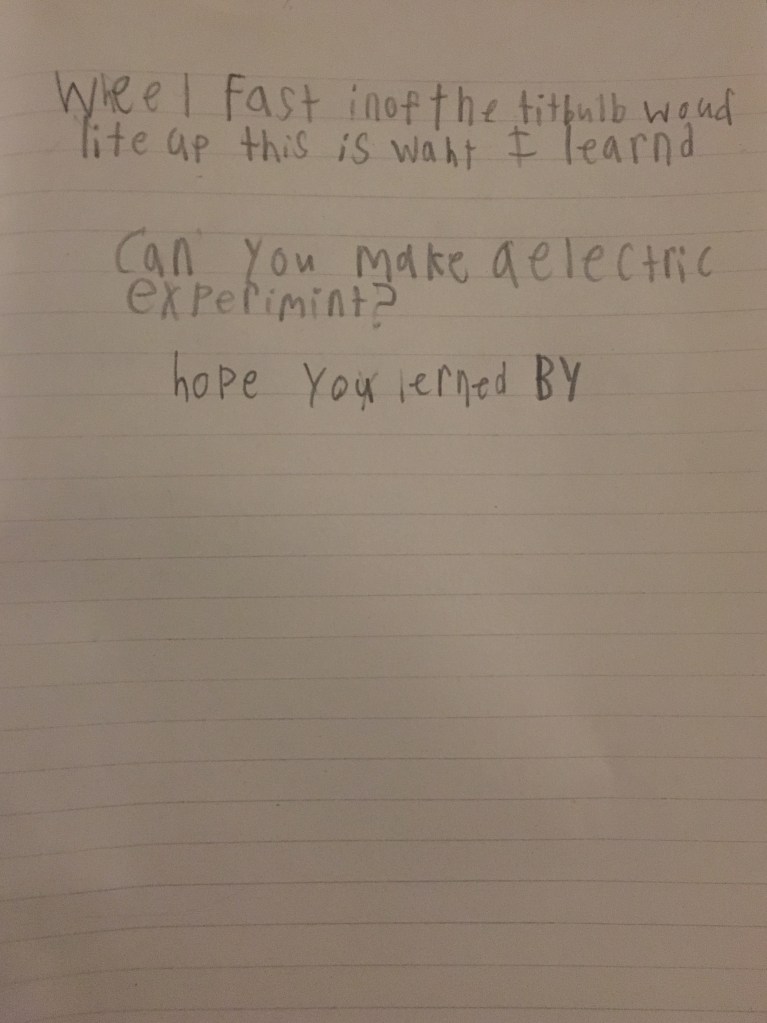 Wheel fast inof the titbulb woud
lite up this is waht I learnd
Can you make aelectric
experimint?
hope you lerned BY